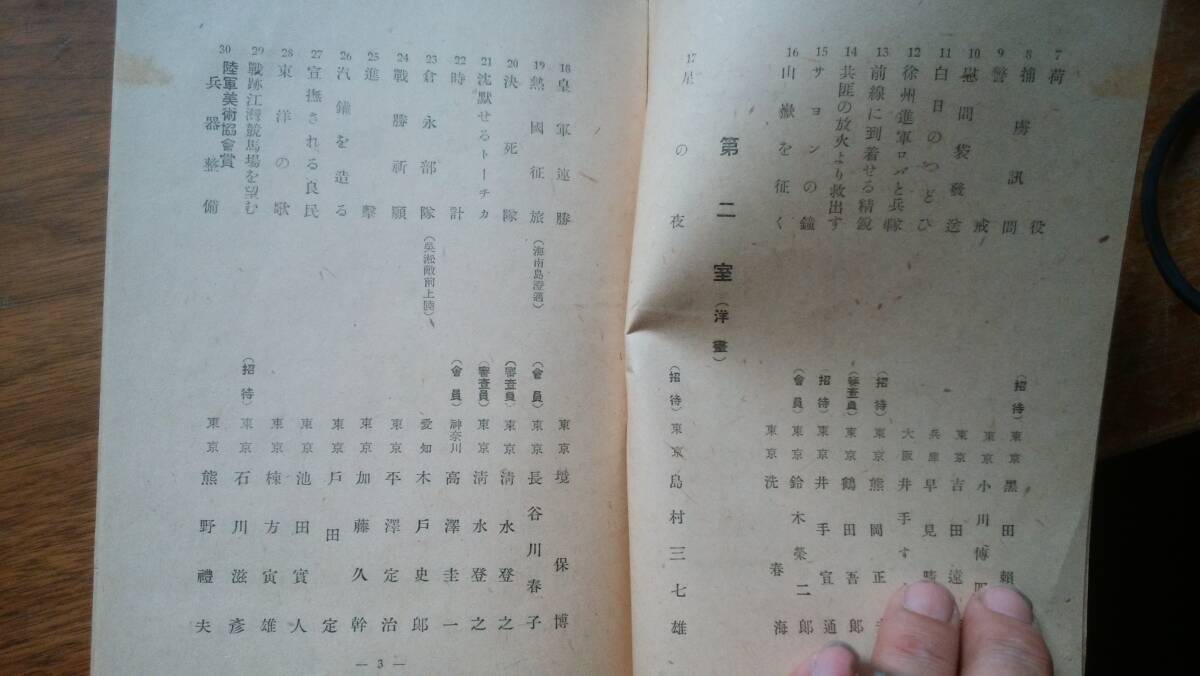 7 荷役 (招待) 東京 黒田頼
8 捕虜訊問 東京 小川博
9 警戒 東京 吉田遠
10 慰問袋發送 兵庫 早見
11 白日のつどひ 大阪 井手す
12 徐州進軍ロバと兵隊 (招待) 東京 熊岡正
13 前線に到着せる精鋭 (審査員) 東京 鶴田吾郎
14 共匪の放火より救出す (招待) 東京 井手宣通
15 サヨンの鐘 (會員) 東京 鈴木榮二郎
16 山嶽を征く 東京 洗春海
第二室 (洋畫)
17 星の夜 (招待) 東京 島村三七雄
18 皇軍連勝 東京 境保博
19 熱國征旅 (海南島澄邁) (會員) 東京 長谷川春子
20 決死隊 (審査員) 東京 清水登之
21 沈默せるトーチカ (審査員) 東京 清水登之
22 時計 (會員) 神奈川 高澤圭一
23 倉永部隊 (呉淞敵前上陸) 愛知 木戸史郎
24 戰勝祈願 東京 平澤定治
25 進撃 東京 加藤久幹
26 汽鑵を造る 東京 戸田定
27 宣撫される良民 東京 池田實人
28 東洋の歌 東京 棟方寅雄
29 戰跡江灣競馬場を望む (招待) 東京 石川滋彦
陸軍美術協會賞
30 兵器整備 東京 熊野禮夫
— 3 —